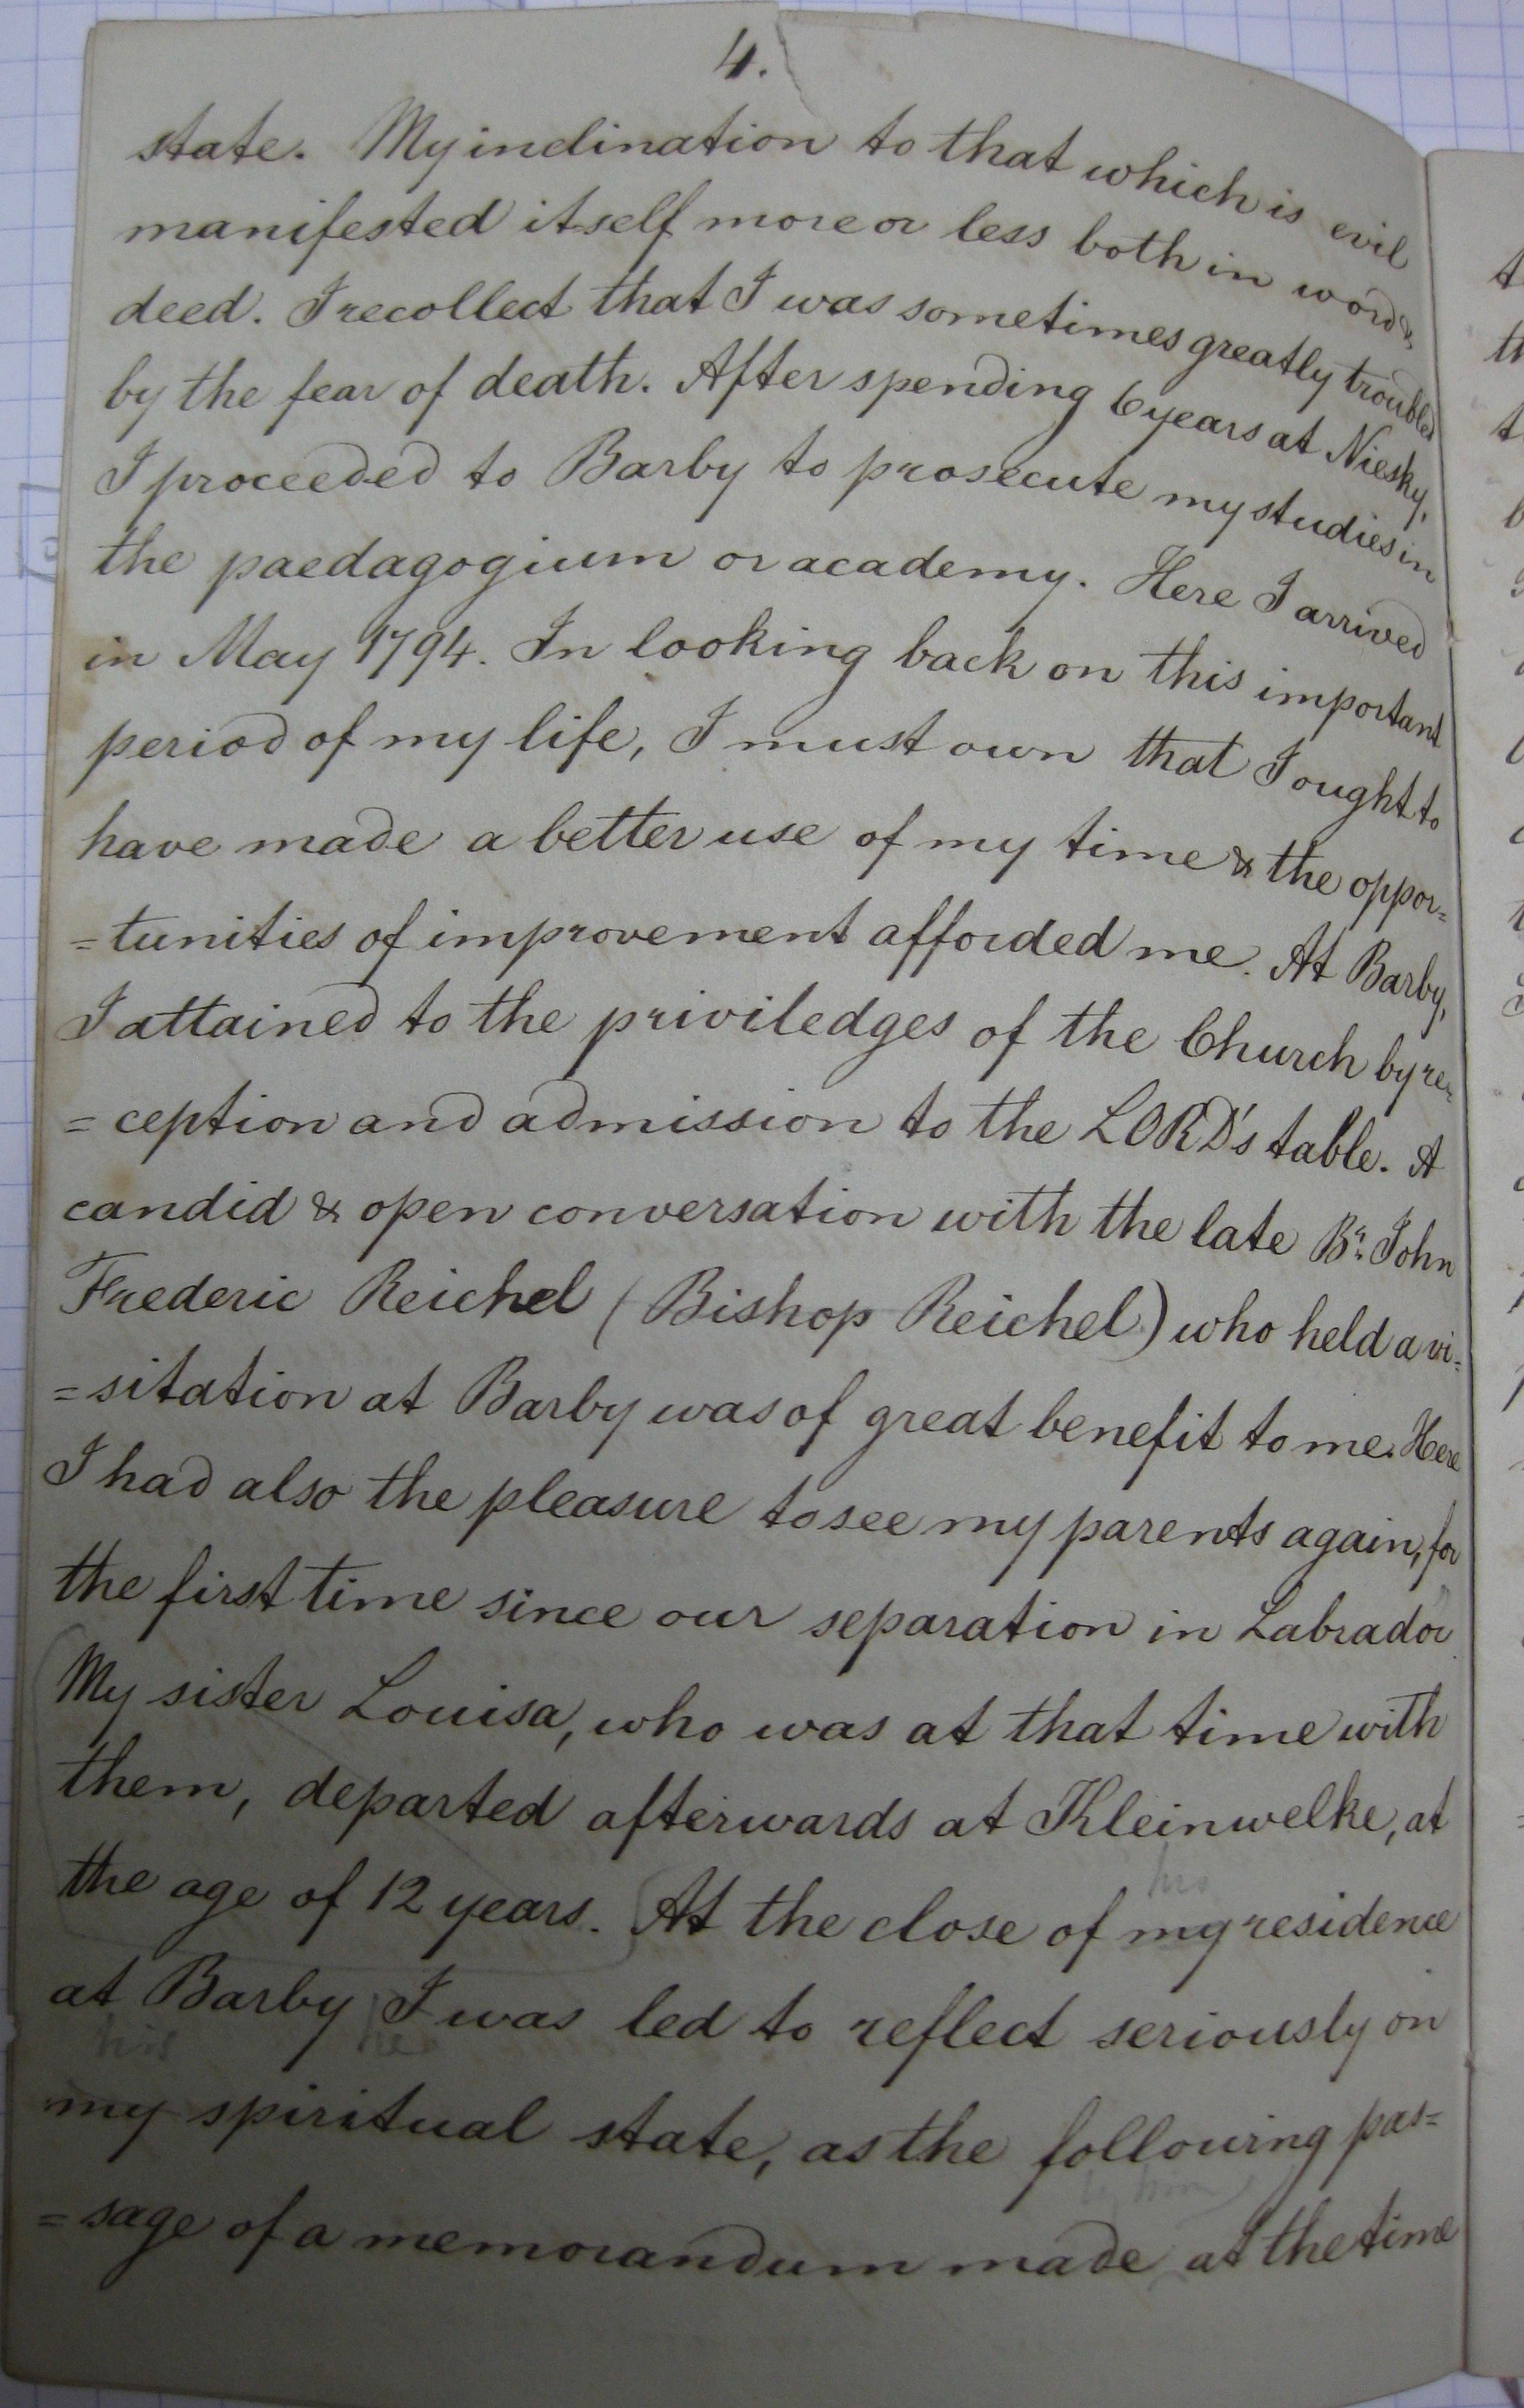 4.
state. My inclination to that which is evil
manifested itself more or less both in word &
deed. I recollect that I was sometimes greatly troubled
by the fear of death. After spending 6 years at Niesky,
I proceeded to Barby to prosecute my studies in
the paedagogium or academy. Here I arrived
in May 1794. In looking back on this important
period of my life, I must own that I ought to
have made a better use of my time & the oppor=
=tunities of improvement afforded me. At Barby,
I attained to the priviledges of the Church by re=
=ception and admission to the LORD's table. A
candid & open conversation with the late Br. John
Frederic Reichel (Bishop Reichel) who held a vi=
=sitation at Barby was of great benefit to me. Here
I had also the pleasure to see my parents again, for
the first time since our separation in Labrador
My sister Louisa, who was at that time with
them, departed afterwards at Kleinwelke, at
his
the age of 12 years. At the close of my residence
at Barby I was led to reflect seriously on
his he
my spiritual state, as the following pas=
by him
=sage of a memorandum made at the time